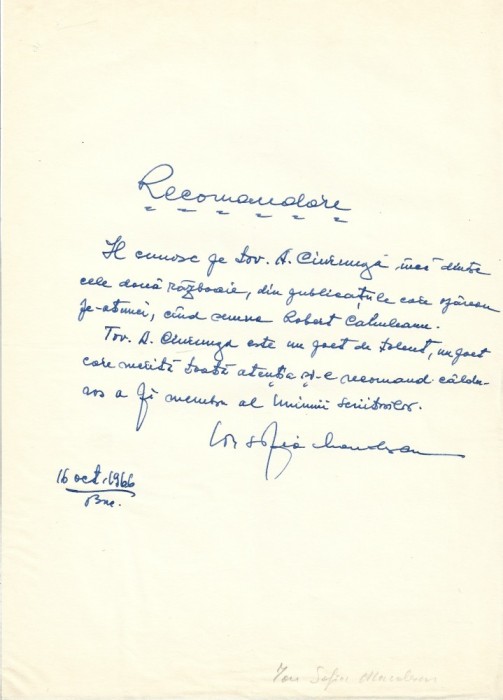 Recomandare
Îl cunosc pe tov. A. Ciurunga încă dintre
cele două războaie, din publicațiile care apăreau
pe-atunci, cînd semna Robert Cahuleanu.
Tov. A. Ciurunga este un poet de talent, un poet
care merită toată atenția și-l recomand căldu-
ros a fi membru al Uniunii Scriitorilor.
Ion Sofia Manolescu
16 oct. 1966
Buc.
Ion Sofia Manolescu